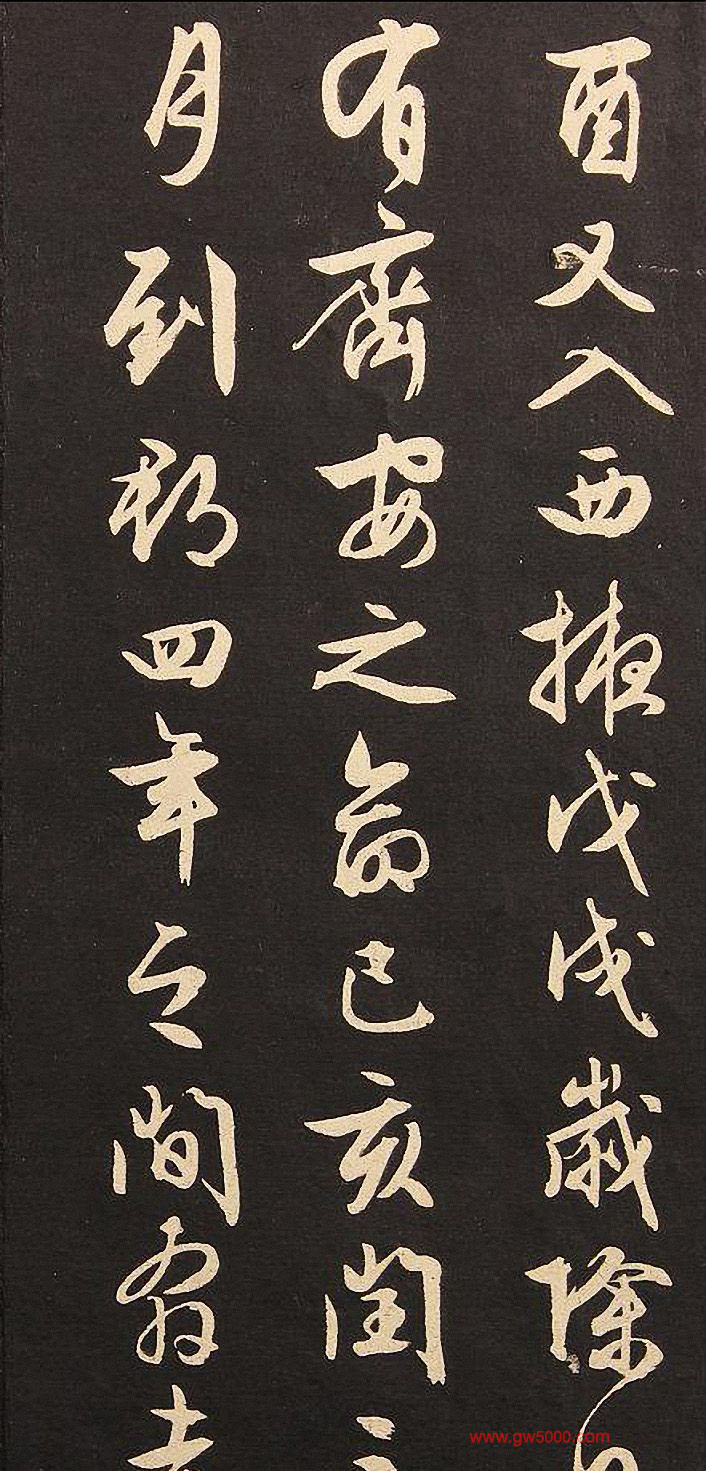 酉又入西掖戊戌歲除日
有齊安之命已亥閏三
月到郡四年之間奔走
www.gw5000.com